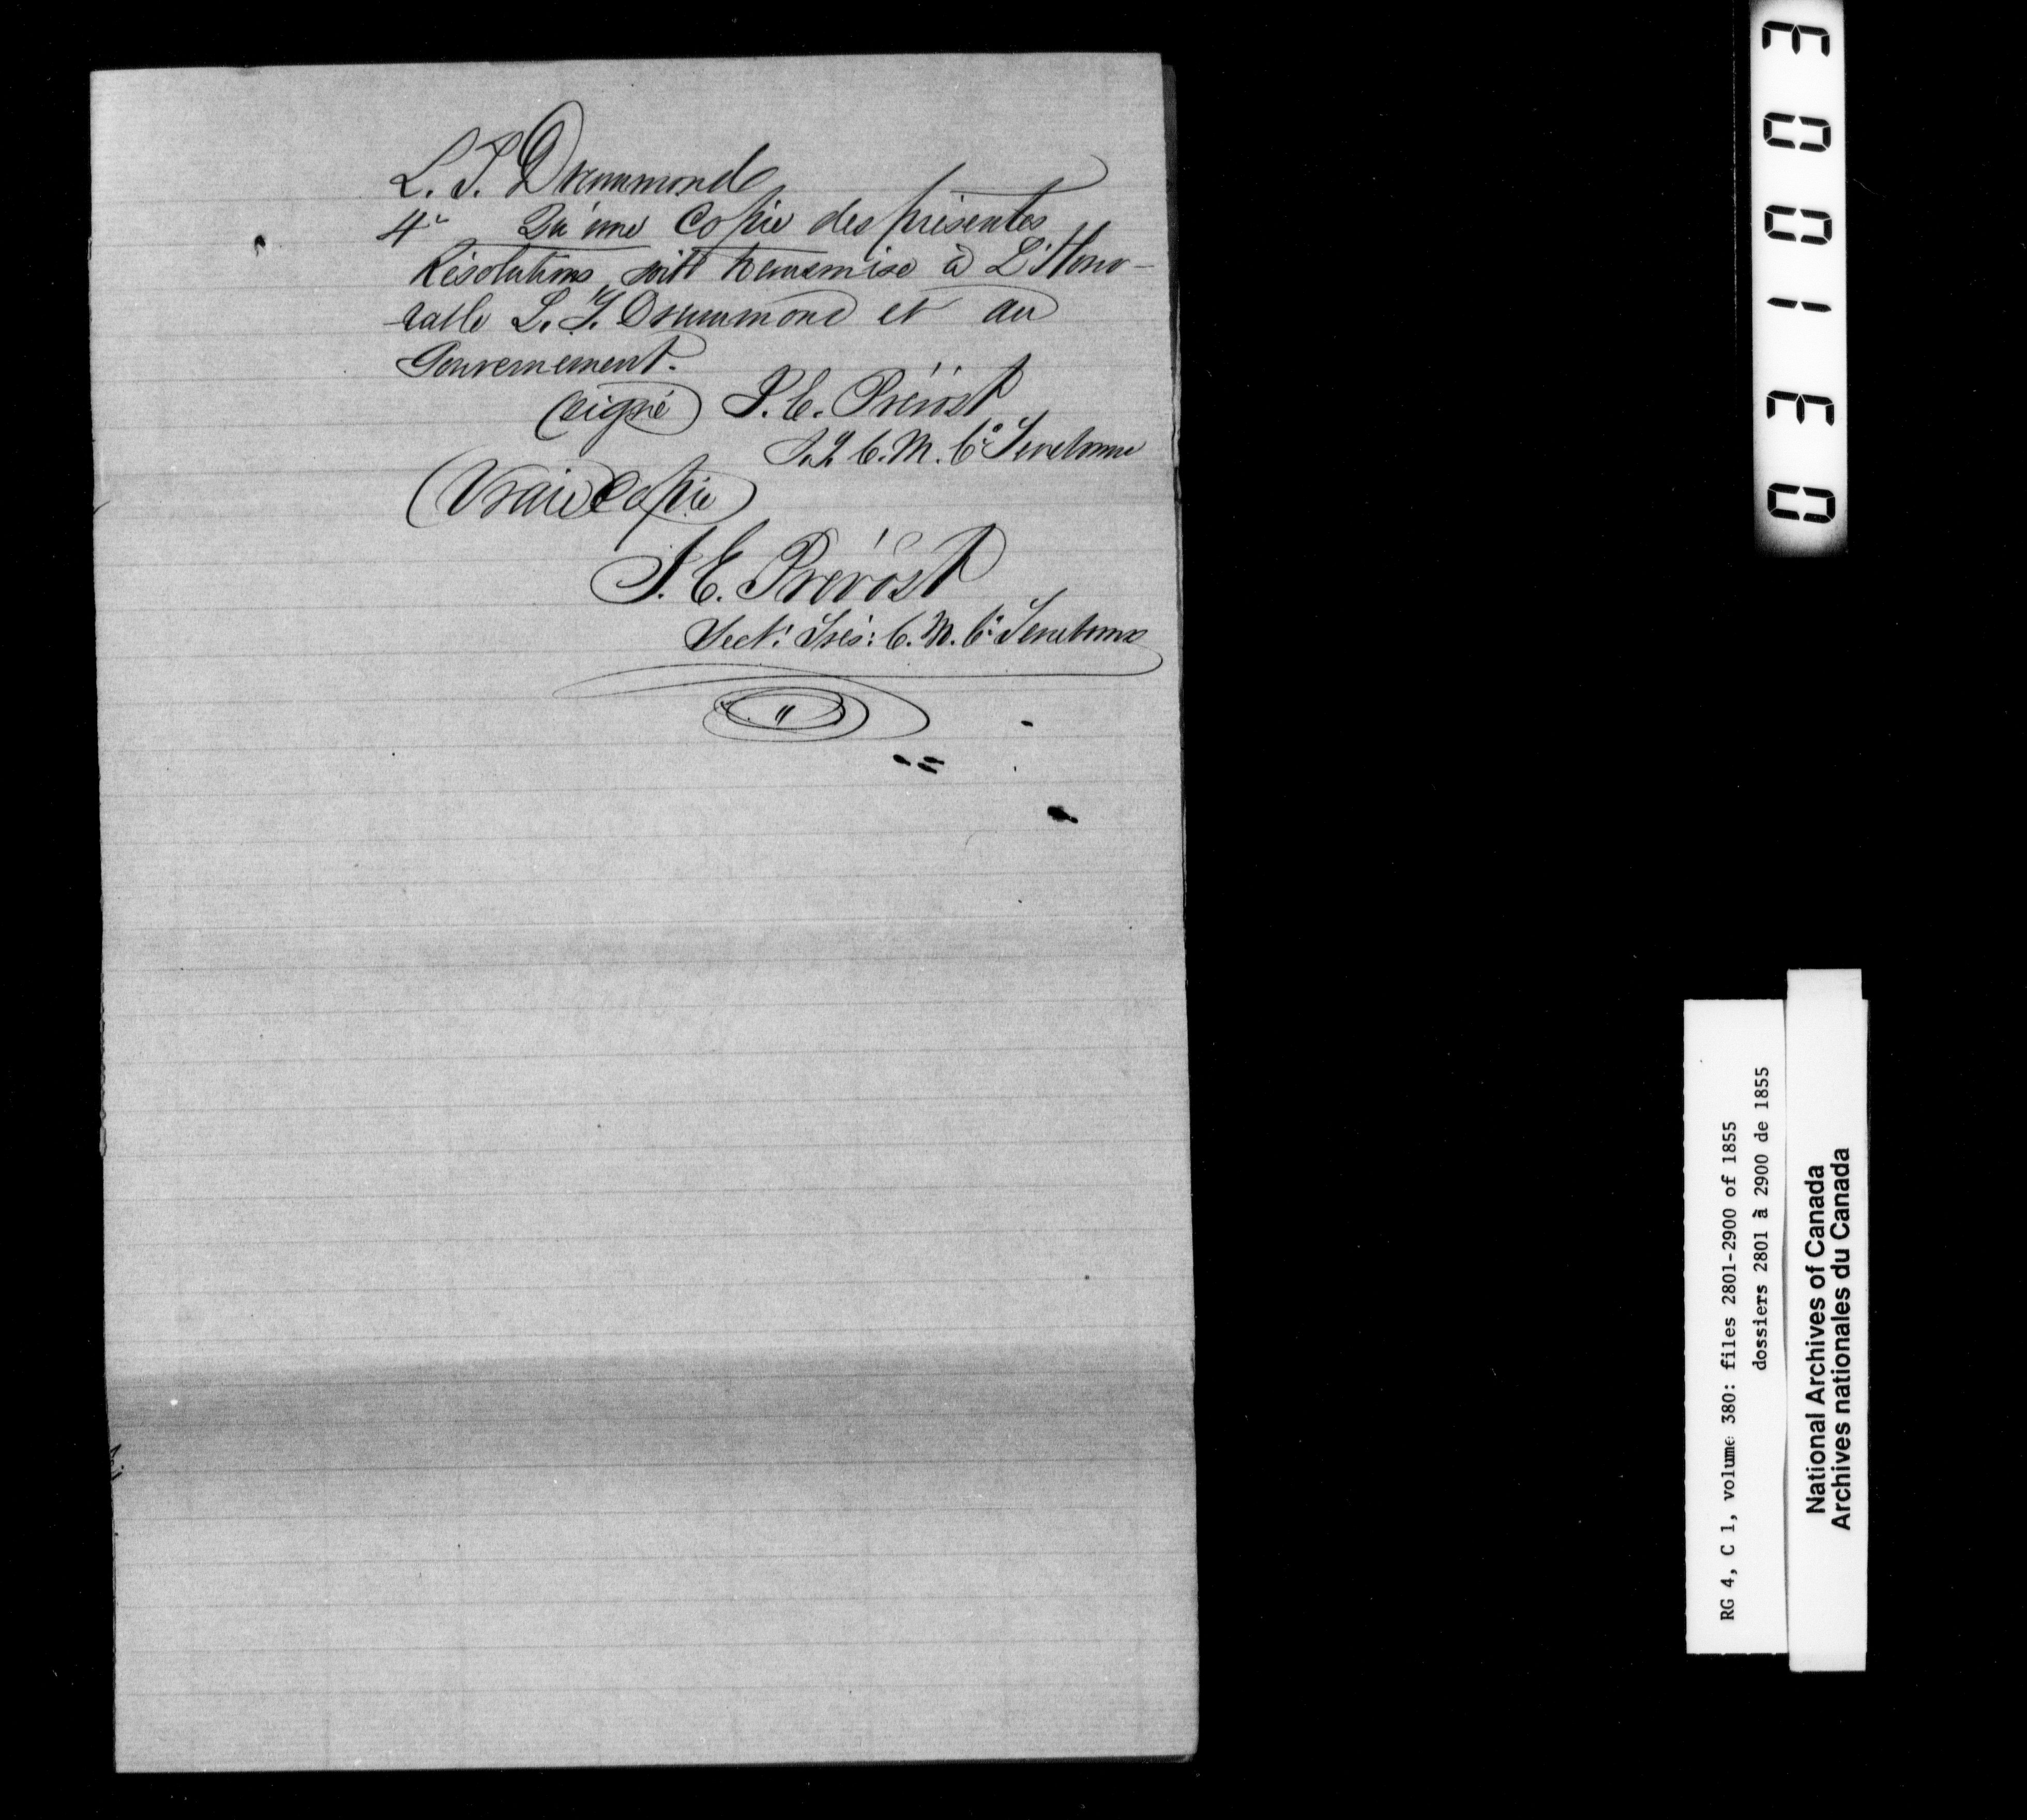 L. T. Drummond
4° Qu'une Copie des présentes
Résolutions soit transmise à L'Hono-
-rable L. T. Drummond et au
Gouvernement.
(signé) J. E. Prévost
S. T. C. M. C° Terrebonne
(Vraie Copie)
J. E. Prévost
Sect: Trés: C. M. C° Terrebonne
030103
RG 4, C 1, volume 380: files 2801-2900 of 1855
dossiers 2801 à 2900 de 1855
National Archives of Canada
Archives nationales du Canada